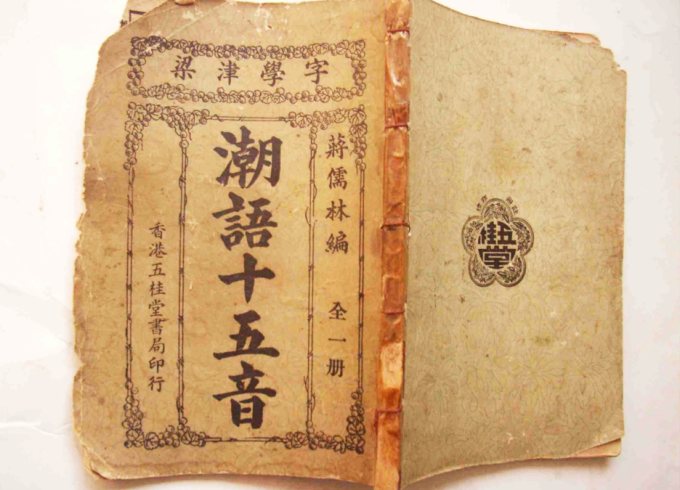 字學津梁
蔣儒林編　全一册
潮語十五音
香港五桂堂書局印行
五桂堂